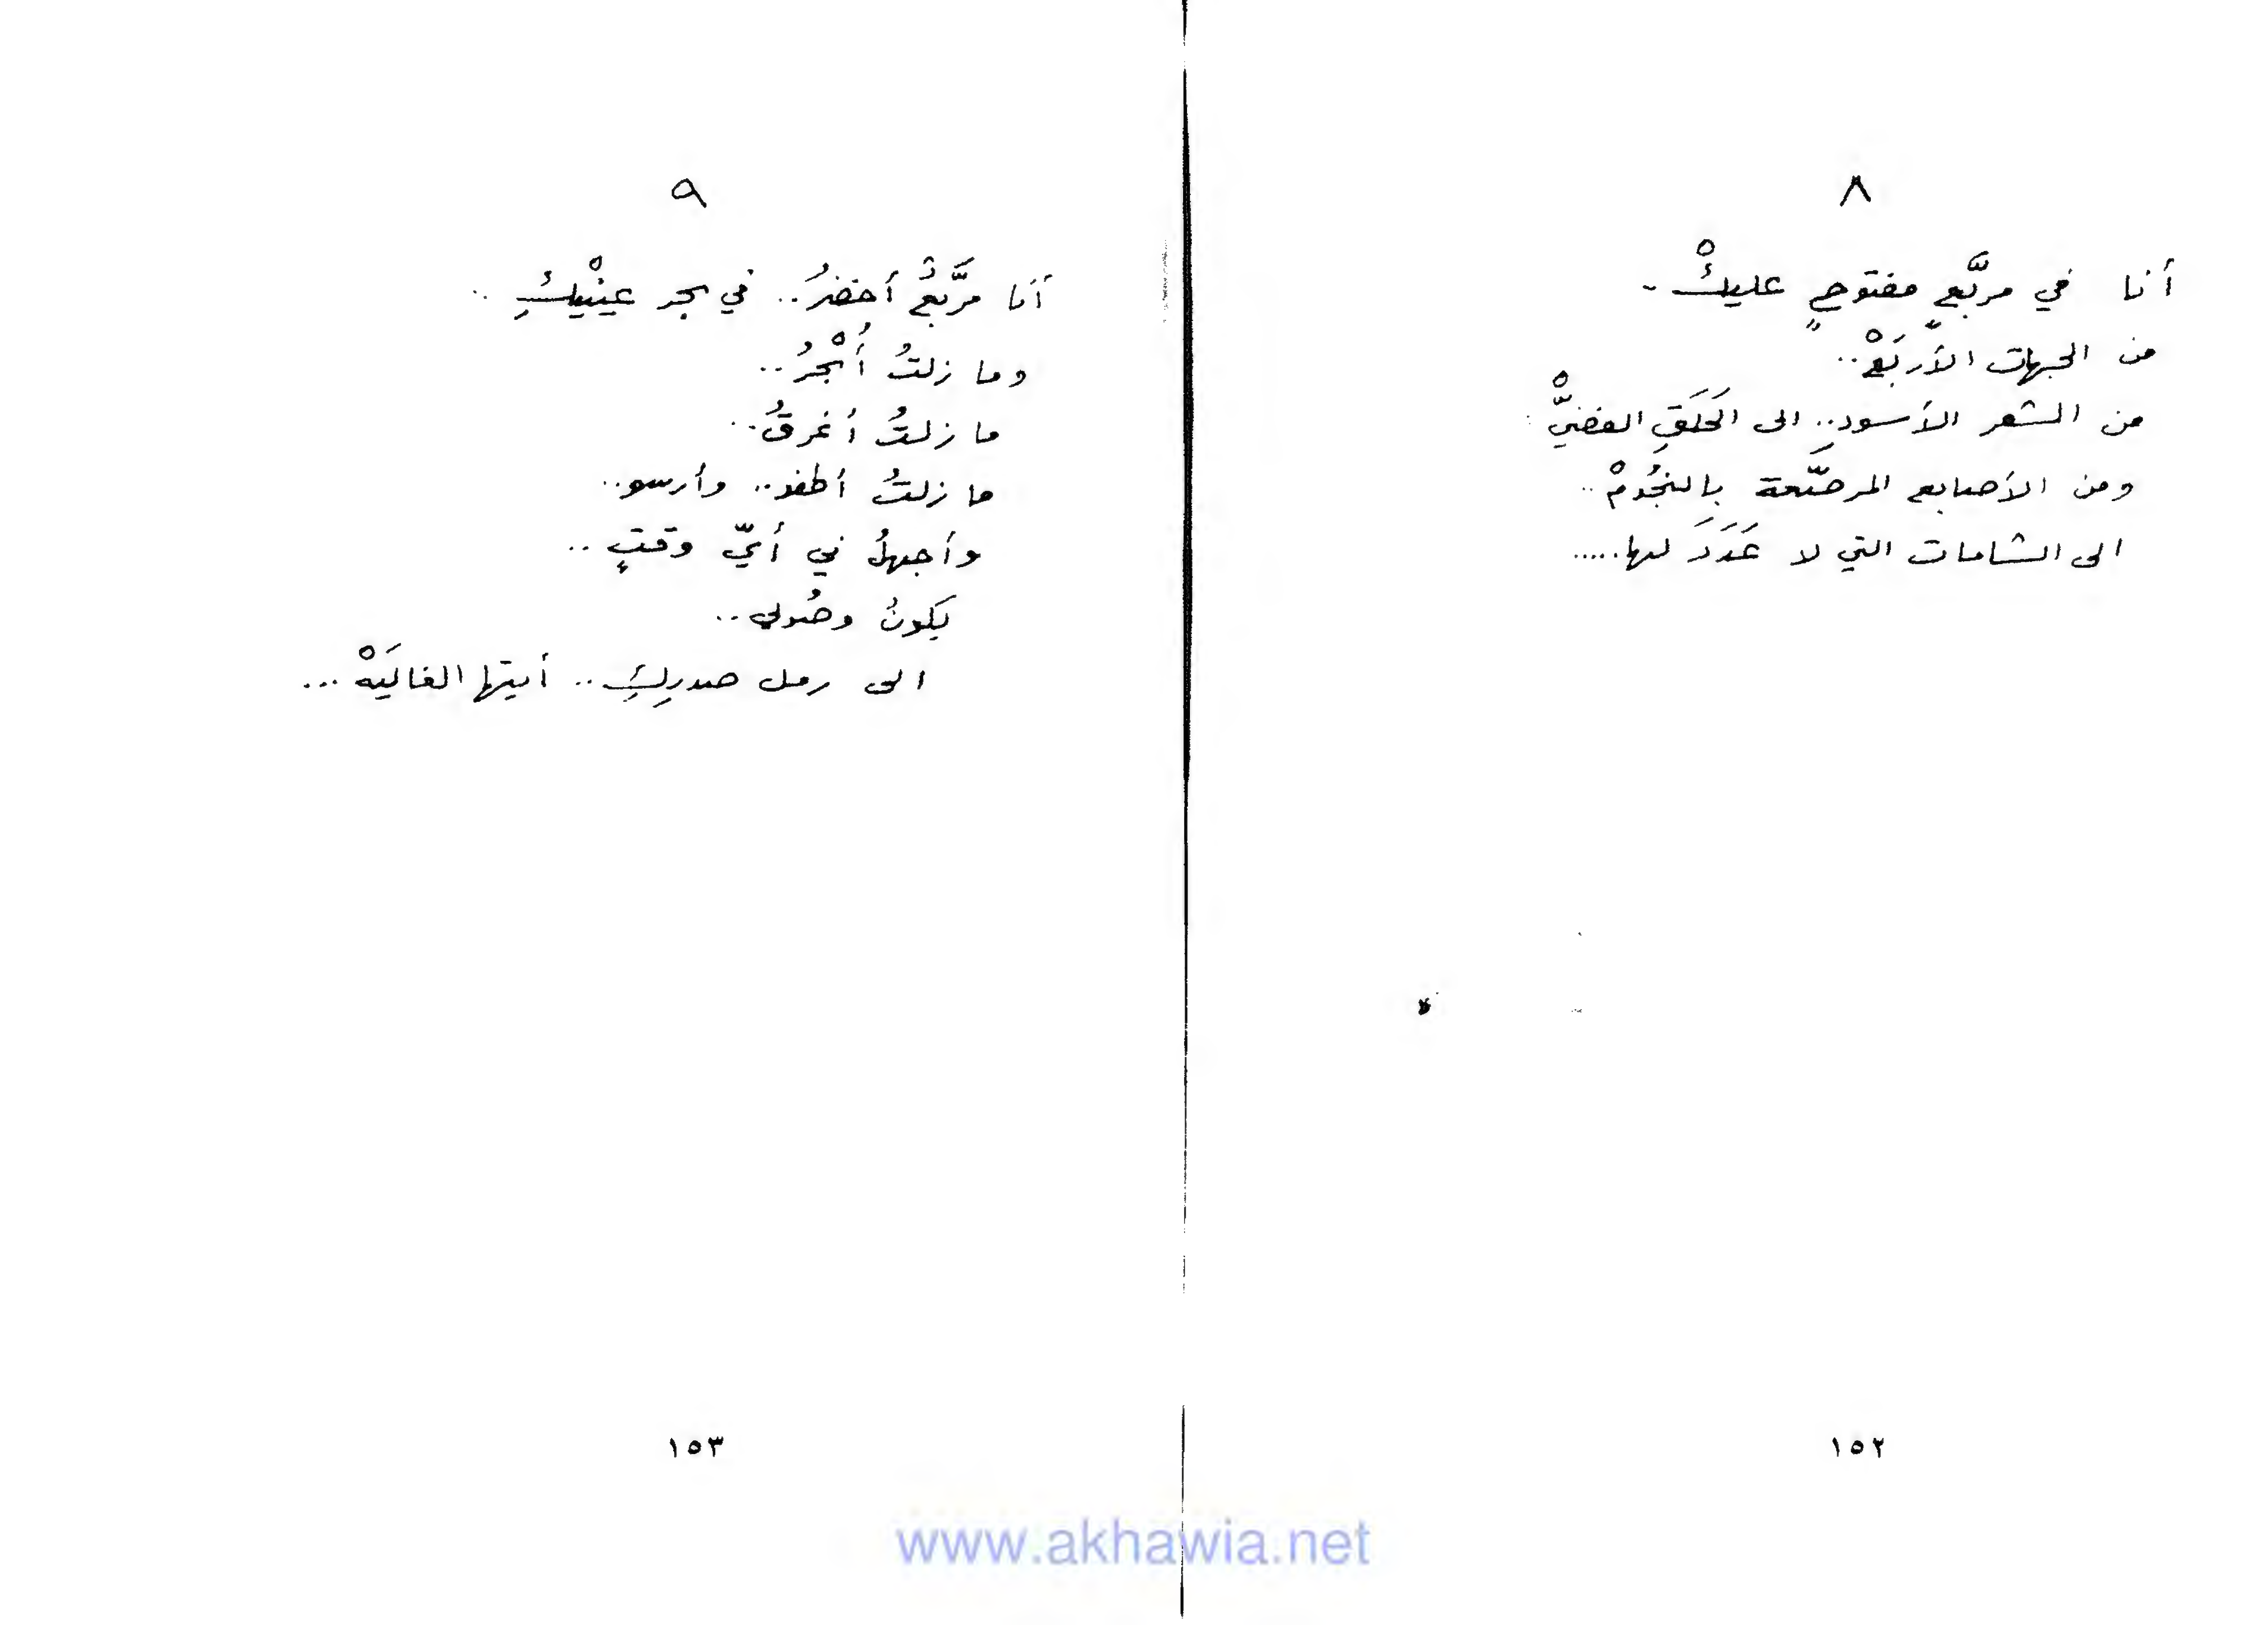 ٨
أنا في مربَّعٍ مفتوحٍ عليكْ..
من الجهات الأربَعْ..
من الشعر الأسودِ.. الى الحَلَقِ الفضيّْ..
ومن الأصابع المرصَّعة بالنجُومْ..
الى الشامات التي لا عَدَدَ لها.....
١٥٢
٩
أنا مربَّعٌ أخضرُ.. في بحر عينْيكِ..
وما زلتُ أُبْحِرُ..
ما زلتُ أغرقُ..
ما زلتُ أطفو.. وأرسو..
وأجهلُ في أيّ وقتٍ..
يكونُ وصُولي..
الى رمل صدرِكِ.. أيتها الغاليَهْ...
١٥٣
www.akhawia.net